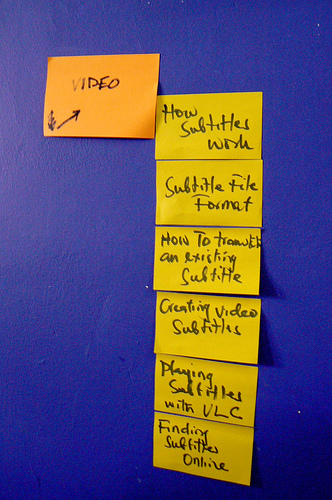 VIDEO
How
Subtitles
Work
Subtitle File
Format
How To
an existing
Subtitle
Creating video
Subtitles
Playing
Subtitles
with VLC
Finding
Subtitles
Online